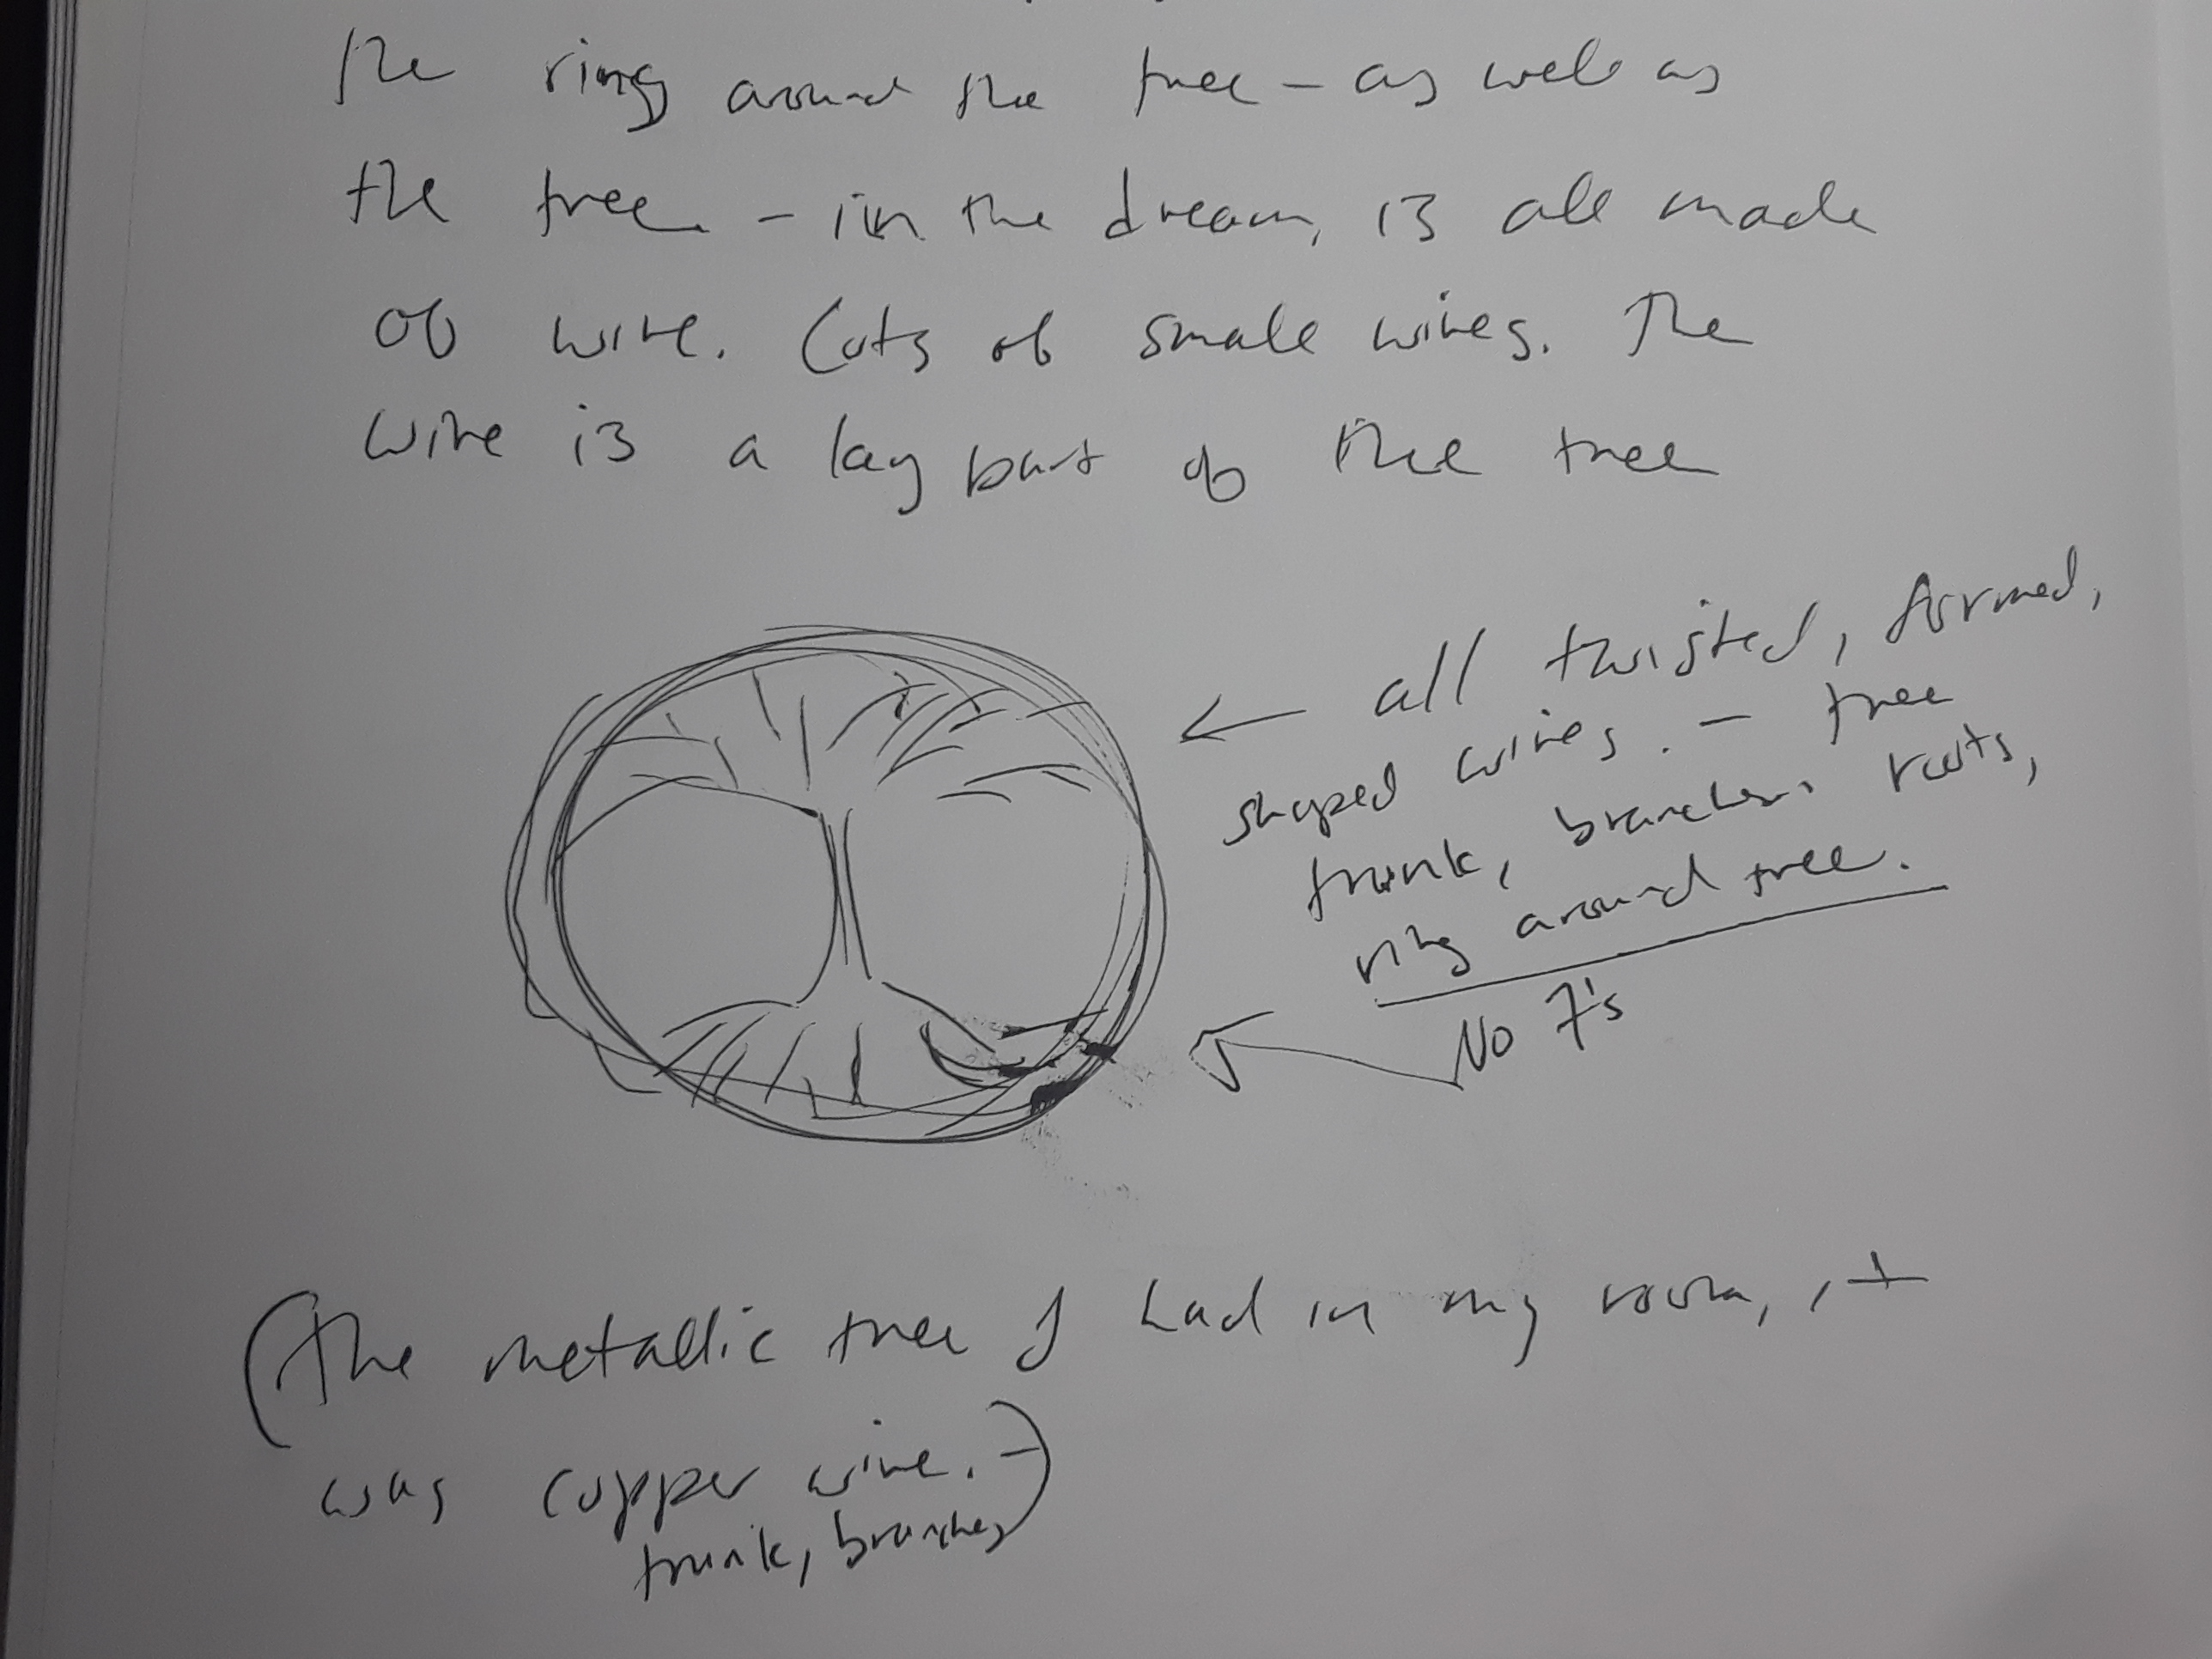 The ring around the tree - as well as
the tree - in the dream, is all made
of wire. Lots of small wires. The
wire is a key part of the tree
← all twisted, formed,
shaped wires. - tree
trunk, branches, roots,
ring around tree.
No 7's
(The metallic tree I had in my room, it
was copper wire. -)
trunk, branches